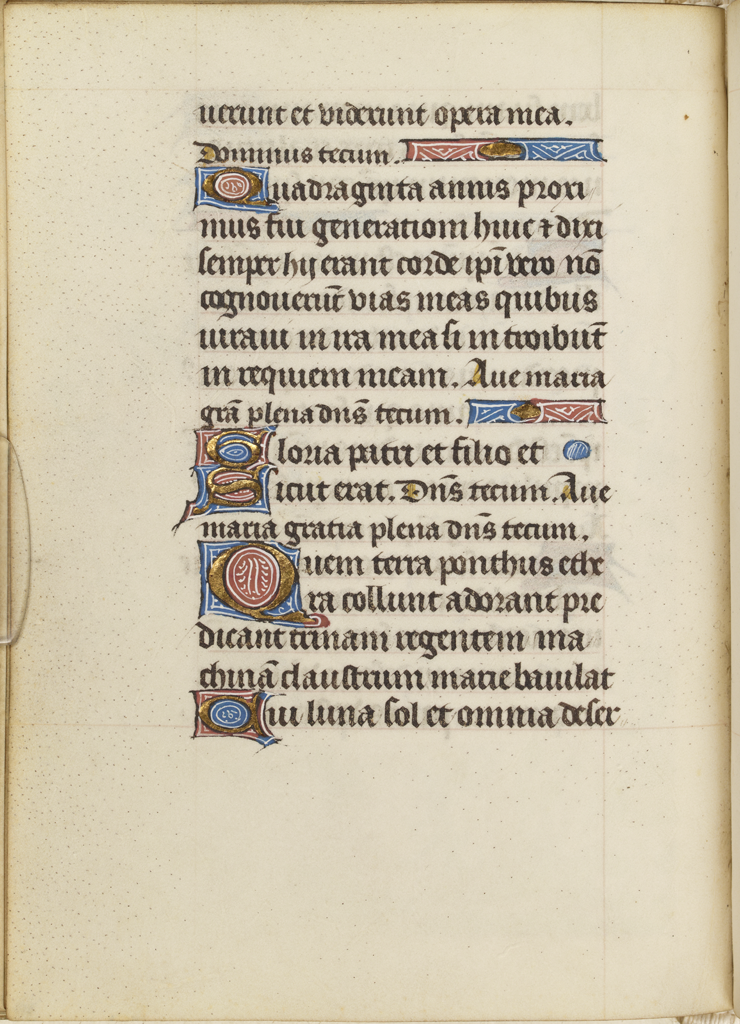 uerunt et viderunt opera mea.
Dominus tecum.
Quadraginta annis proxi
mus fui generationi huic ⁊ dixi
semper hij errant corde ipĩ vero nõ
cognouerũt vias meas quibus
iuraui in ira mea si introibũt
in requiem meam. Aue maria
grã plena dñs tecum.
Gloria patri et filio et
Sicut erat. Dñs tecum. Aue
maria gratia plena dñs tecum.
Quem terra ponthus ethe
ra collunt adorant pre
dicant trinam regentem ma
chinã claustrum marie baiulat
Cui luna sol et omnia deser